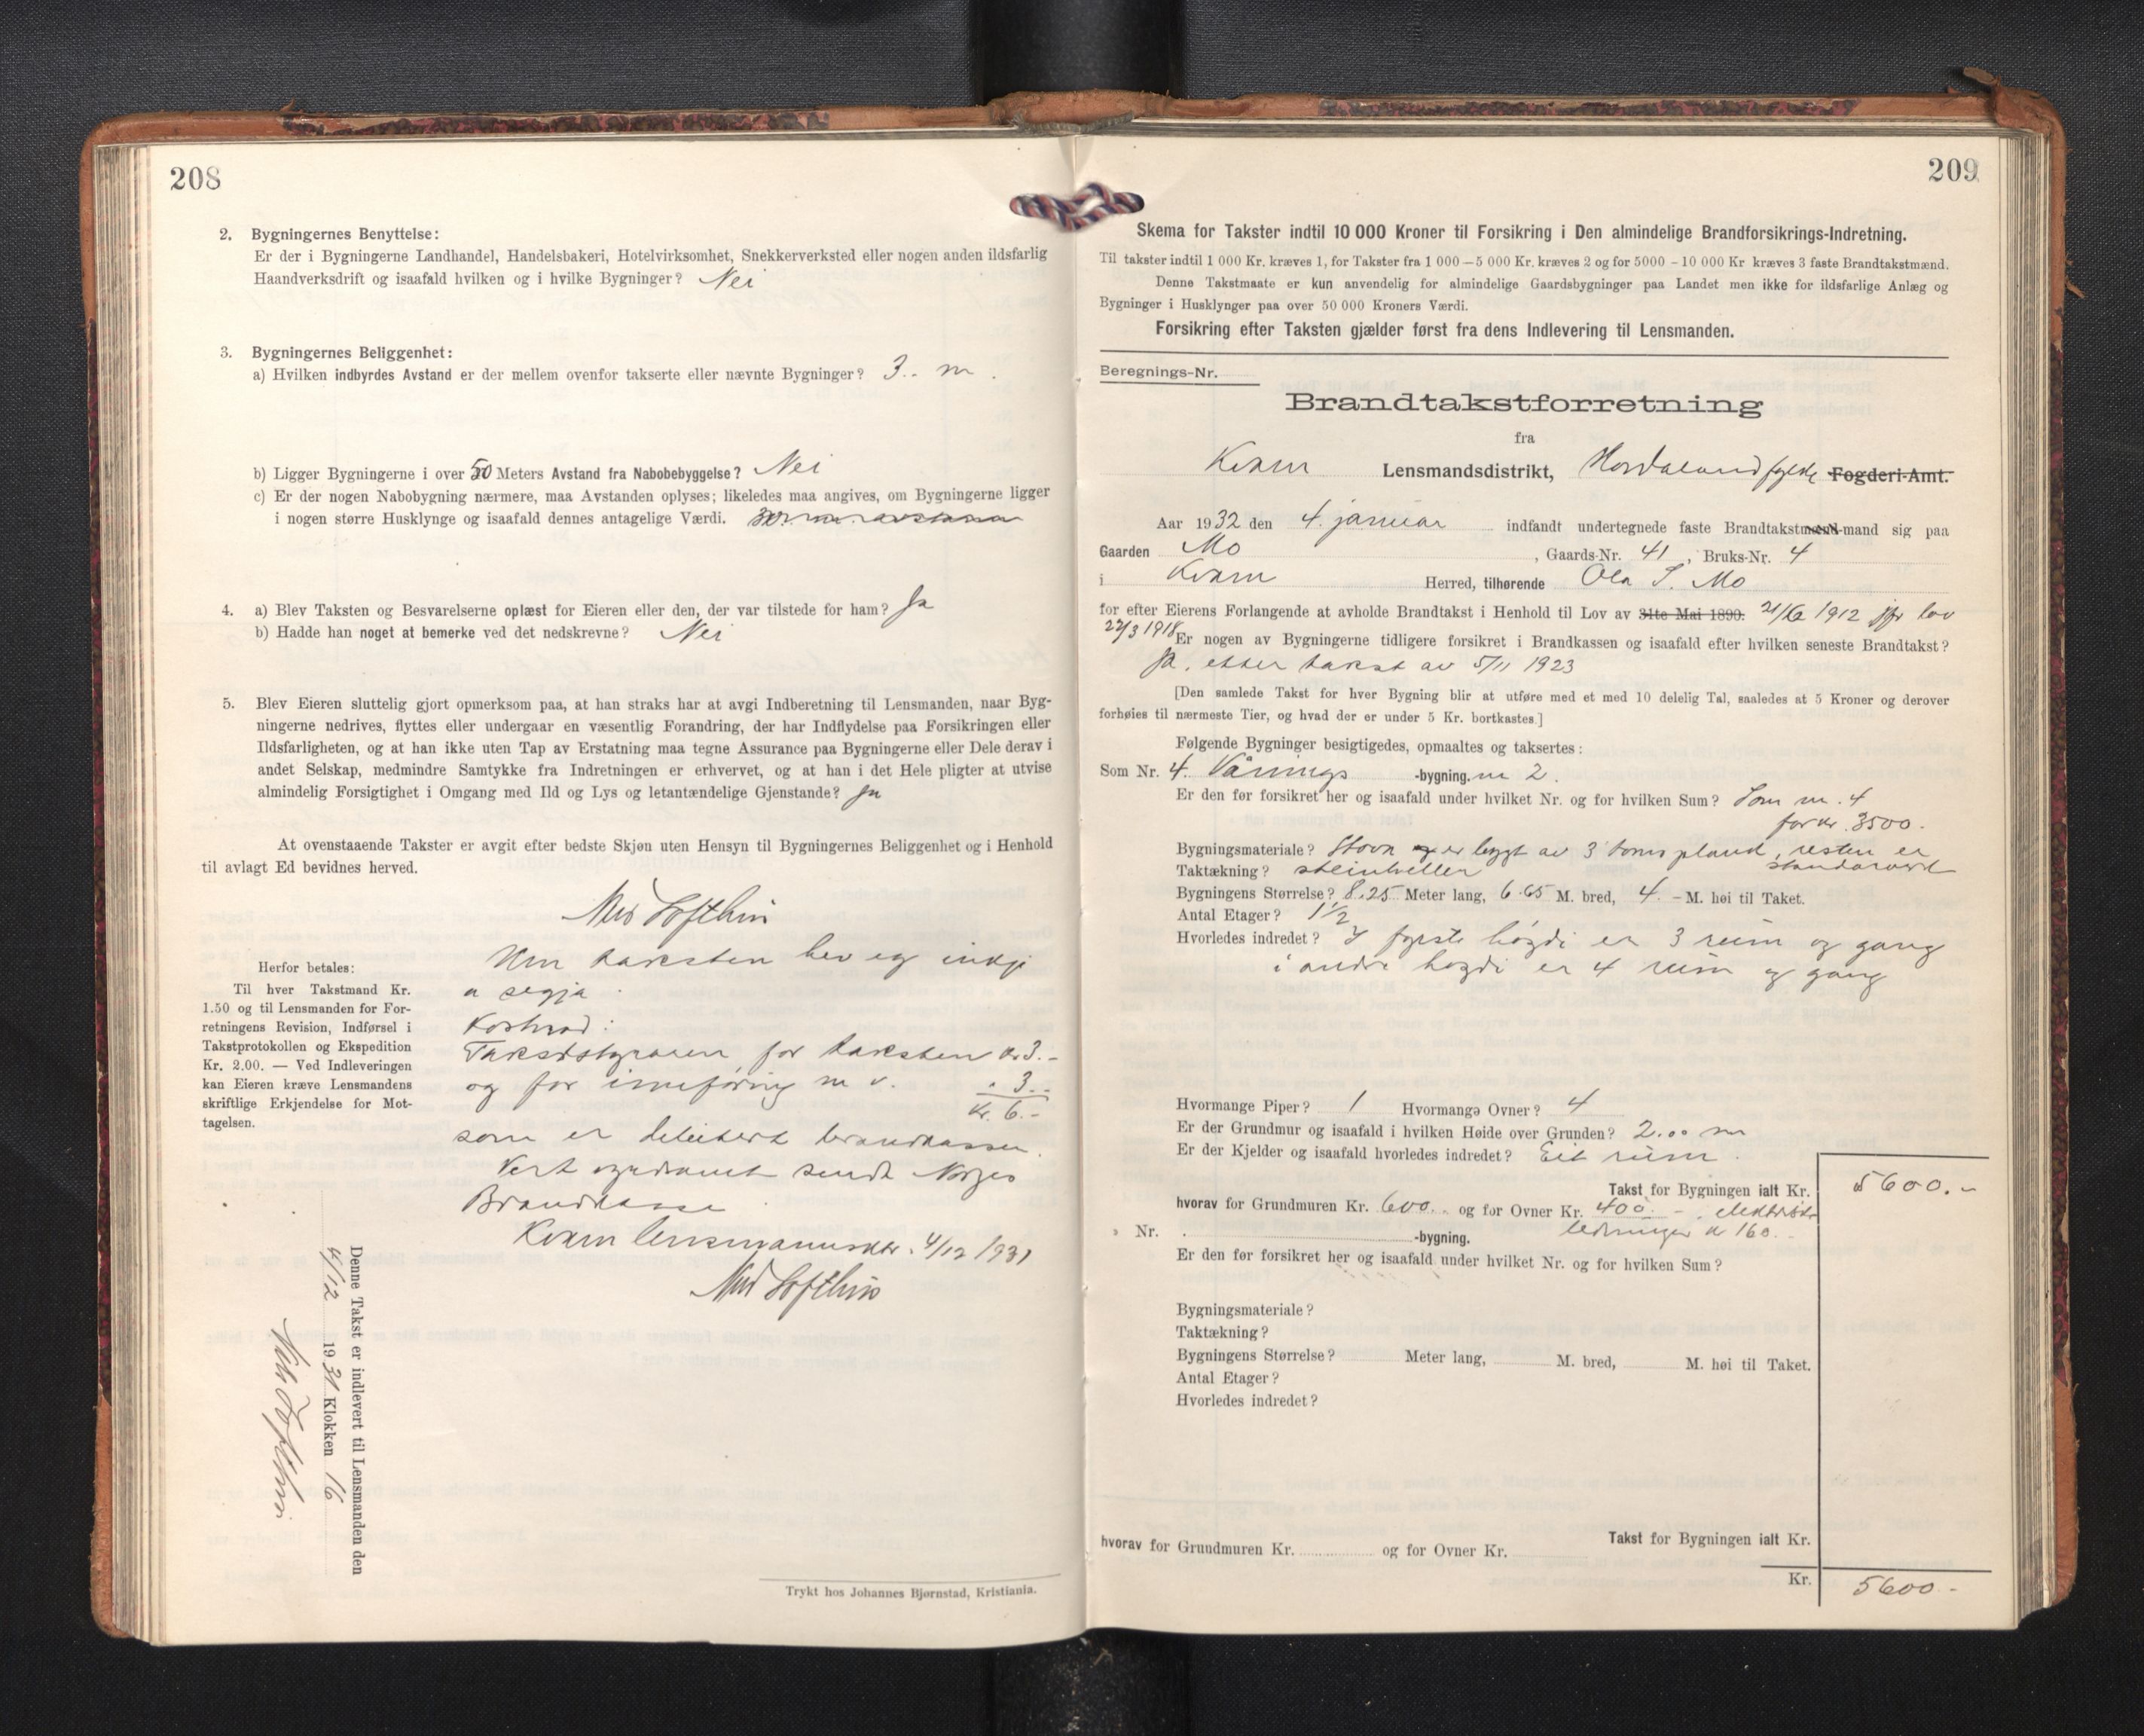 208
2. Bygningernes Benyttelse:
Er der i Bygningerne Landhandel, Handelsbakeri, Hotelvirksomhet, Snekkerverksted eller nogen anden ildsfarlig
Haandverksdrift og isaafald hvilken og i hvilke Bygninger? Nei
3. Bygningernes Beliggenhet:
a) Hvilken indbyrdes Avstand er der mellem ovenfor takserte eller nævnte Bygninger? 3.- m.
b) Ligger Bygningerne i over 50 Meters Avstand fra Nabobebyggelse? Nei
c) Er der nogen Nabobygning nærmere, maa Avstanden oplyses; likeledes maa angives, om Bygningerne ligger
i nogen større Husklynge og isaafald dennes antagelige Værdi.
4. a) Blev Taksten og Besvarelserne oplæst for Eieren eller den, der var tilstede for ham? Ja
b) Hadde han noget at bemerke ved det nedskrevne? Nei
5. Blev Eieren sluttelig gjort opmerksom paa, at han straks har at avgi Indberetning til Lensmanden, naar Byg-
ningerne nedrives, flyttes eller undergaar en væsentlig Forandring, der har Indflydelse paa Forsikringen eller
Ildsfarligheten, og at han ikke uten Tap av Erstatning maa tegne Assurance paa Bygningerne eller Dele derav i
andet Selskap, medmindre Samtykke fra Indretningen er erhvervet, og at han i det Hele pligter at utvise
almindelig Forsigtighet i Omgang med Ild og Lys og letantændelige Gjenstande? Ja
At ovenstaaende Takster er avgit efter bedste Skjøn uten Hensyn til Bygningernes Beliggenhet og i Henhold
til avlagt Ed bevidnes herved.
Nils Lofthus
Um taksten hev eg inkje
a segja.
Kostnad:
Takststyraren for taksten kr 3.-
og for innføring m v. " 3.-
Kr. 6.-
som er debitert brandkassen.
Vert sendt Norges
Brandkasse
Kvam lensmannsktr. 4/12 1931
Nils Lofthus
Herfor betales:
Til hver Takstmand Kr.
1.50 og til Lensmanden for For-
retningens Revision, Indførsel i
Takstprotokollen og Ekspedition
Kr. 2.00. — Ved Indleveringen
kan Eieren kræve Lensmandens
skriftlige Erkjendelse for Mot-
tagelsen.
Denne Takst er indlevert til Lensmanden den
4/12 1931 Klokken 16
Nils Lofthus
Trykt hos Johannes Bjørnstad, Kristiania.
209
Skema for Takster indtil 10 000 Kroner til Forsikring i Den almindelige Brandforsikrings-Indretning.
Til takster indtil 1 000 Kr. kræves 1, for Takster fra 1 000 – 5 000 Kr. kræves 2 og for 5000 – 10 000 Kr kræves 3 faste Brandtakstmænd.
Denne Takstmaate er kun anvendelig for almindelige Gaardsbygninger paa Landet men ikke for ildsfarlige Anlæg og
Bygninger i Husklynger paa over 50 000 Kroners Værdi.
Forsikring efter Taksten gjælder først fra dens Indlevering til Lensmanden.
Beregnings-Nr.
Brandtakstforretning
fra
Kvam Lensmandsdistrikt, Hordaland fylke Fogderi-Amt.
Aar 1932 den 4. januar indfandt undertegnede faste Brandtakstmænd-mand sig paa
Gaarden Mo, Gaards-Nr. 41, Bruks-Nr. 4
i Kvam Herred, tilhørende Ola S. Mo
for efter Eierens Forlangende at avholde Brandtakst i Henhold til Lov av 31te Mai 1890. 21/6 1912 jfr lov
22/3 1918
Er nogen av Bygningerne tidligere forsikret i Brandkassen og isaafald efter hvilken seneste Brandtakst?
Ja, etter takst av 5/11 1923
[Den samlede Takst for hver Bygning blir at utføre med et med 10 delelig Tal, saaledes at 5 Kroner og derover
forhøies til nærmeste Tier, og hvad der er under 5 Kr. bortkastes.]
Følgende Bygninger besigtigedes, opmaaltes og taksertes:
Som Nr. 4. Vånings -bygning. nr 2.
Er den før forsikret her og isaafald under hvilket Nr. og for hvilken Sum? Som nr. 4
for kr. 3500.
Bygningsmateriale? Stova er bygt av 3 toms plank, resten er
Taktækning? steinheller
Bygningens Størrelse? 8.25 Meter lang, 6.65 M. bred, 4.- M. høi til Taket.
Antal Etager? 1 1/2
Hvorledes indredet? I fyrste høgdi er 3 rum og gang
i andre høgdi er 4 rum og gang
Hvormange Piper? 1 Hvormange Ovner? 4
Er der Grundmur og isaafald i hvilken Høide over Grunden? 2.00 m
Er der Kjelder og isaafald hvorledes indredet? Eit rum.
Takst for Bygningen ialt Kr. 5600.-
hvorav for Grundmuren Kr. 600.. og for Ovner Kr. 400.- elektriske
ledninger kr 160.-
Nr. -bygning.
Er den før forsikret her og isaafald under hvilket Nr. og for hvilken Sum?
Bygningsmateriale?
Taktækning?
Bygningens Størrelse? Meter lang, M. bred, M. høi til Taket.
Antal Etager?
Hvorledes indredet?
Takst for Bygningen ialt Kr.
hvorav for Grundmuren Kr. og for Ovner Kr.
Kr. 5600-